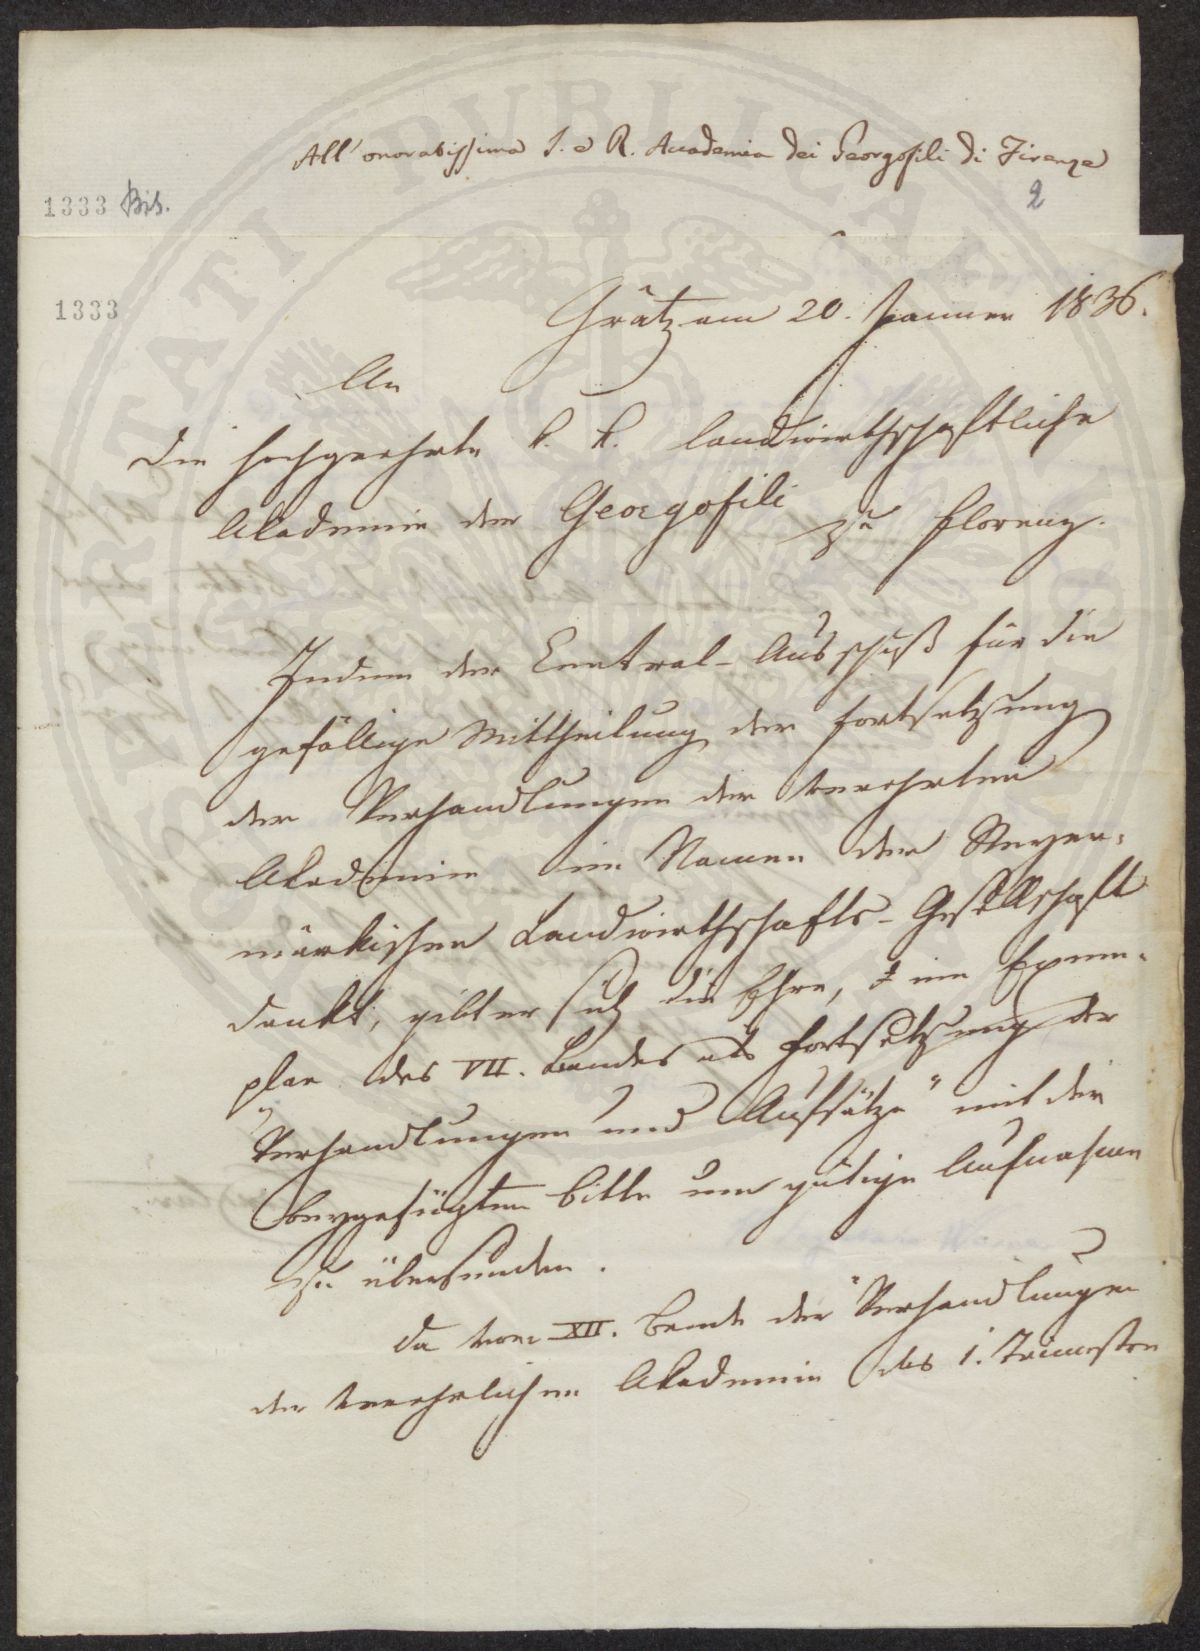 All' onorabissima I. e R. Accademia dei Georgofili di Firenze
2
1333 Bis.
1333
Grätz am 20. Jänner 1836.
An
die hochgeehrte k. k. landwirthschaftliche
Akademie der Georgofili zu Florenz.
Indem der Central-Ausschuß für die
gefällige Mittheilung der Fortsetzung
der Verhandlungen der verehrten
Akademie im Namen der Steyer-
märkischen Landwirthschafts-Gesellschaft
dankt, gibt er sich die Ehre, ein Exem-
plar des VII. Bandes als Fortsetzung der
"Verhandlungen und Aufsätze" mit der
beygefügten Bitte um gütige Aufnahme
zu übersenden.
Da vom XII. Bande der "Verhandlungen
der verehrlichen Akademie das 1. Trimester